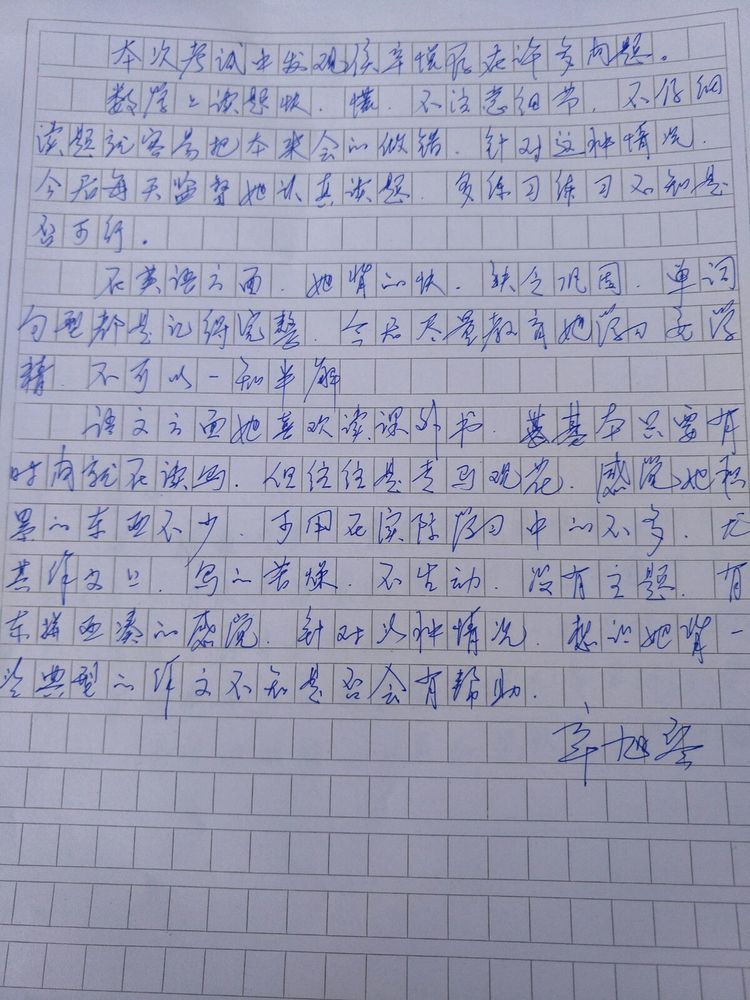 本次考试中发现侯辛悦存在许多问题。
数学上读题快.慌.不注意细节.不仔细
读题就容易把本来会的做错.针对这种情况.
今后每天监督她认真读题.多练习练习不知是
否可行。
在英语方面.她背的快.缺乏巩固.单词
句型都是记得完整.今后尽量教育她学习要学
精.不可以一知半解
语文方面她喜欢读课外书.基本只要有
时间就在读的.但往往是走马观花.感觉她积
累的东西不少.可用在实际学习中的不多.尤
其作文上.写的苦燥.不生动.没有主题.有
东拼西凑的感觉.针对以种情况.想让她背一
些典型的作文不知是否会有帮助.
辛旭